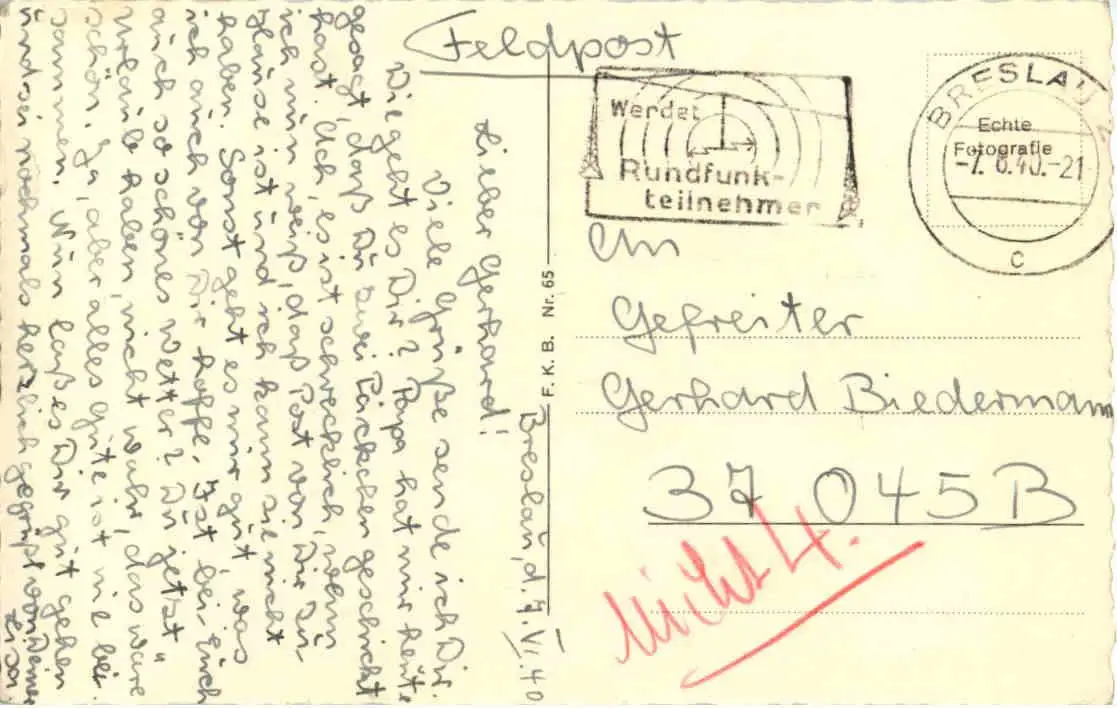 Feldpost
Breslau, d. 7. VI. 40
Lieber Gerhard!
Viele Grüße sende ich Dir.
Wie geht es Dir? Papa hat mir heute
gesagt, daß Du zwei Päckchen geschickt
hast. Ach, es ist schrecklich, wenn
ich nun weiß, daß Post von Dir zu
Hause ist und ich kann sie nicht
haben. Sonst geht es mir gut, was
ich auch von Dir hoffe. Ist bei Euch
auch so schönes Wetter? Du jetzt
Urlaub haben, nicht wahr, das wäre
schön. Ja, aber alles Gute ist nie bei-
sammen. Nun laß es Dir gut gehen
und sei nochmals herzlich gegrüßt von Deiner
F. K. B. Nr. 65
Werdet
Rundfunk-
teilnehmer
BRESLAU
Echte
Fotografie
-7.6.40.-21
c
An
Gefreiter
Gerhard Biedermann
37 045 B
nicht 4.